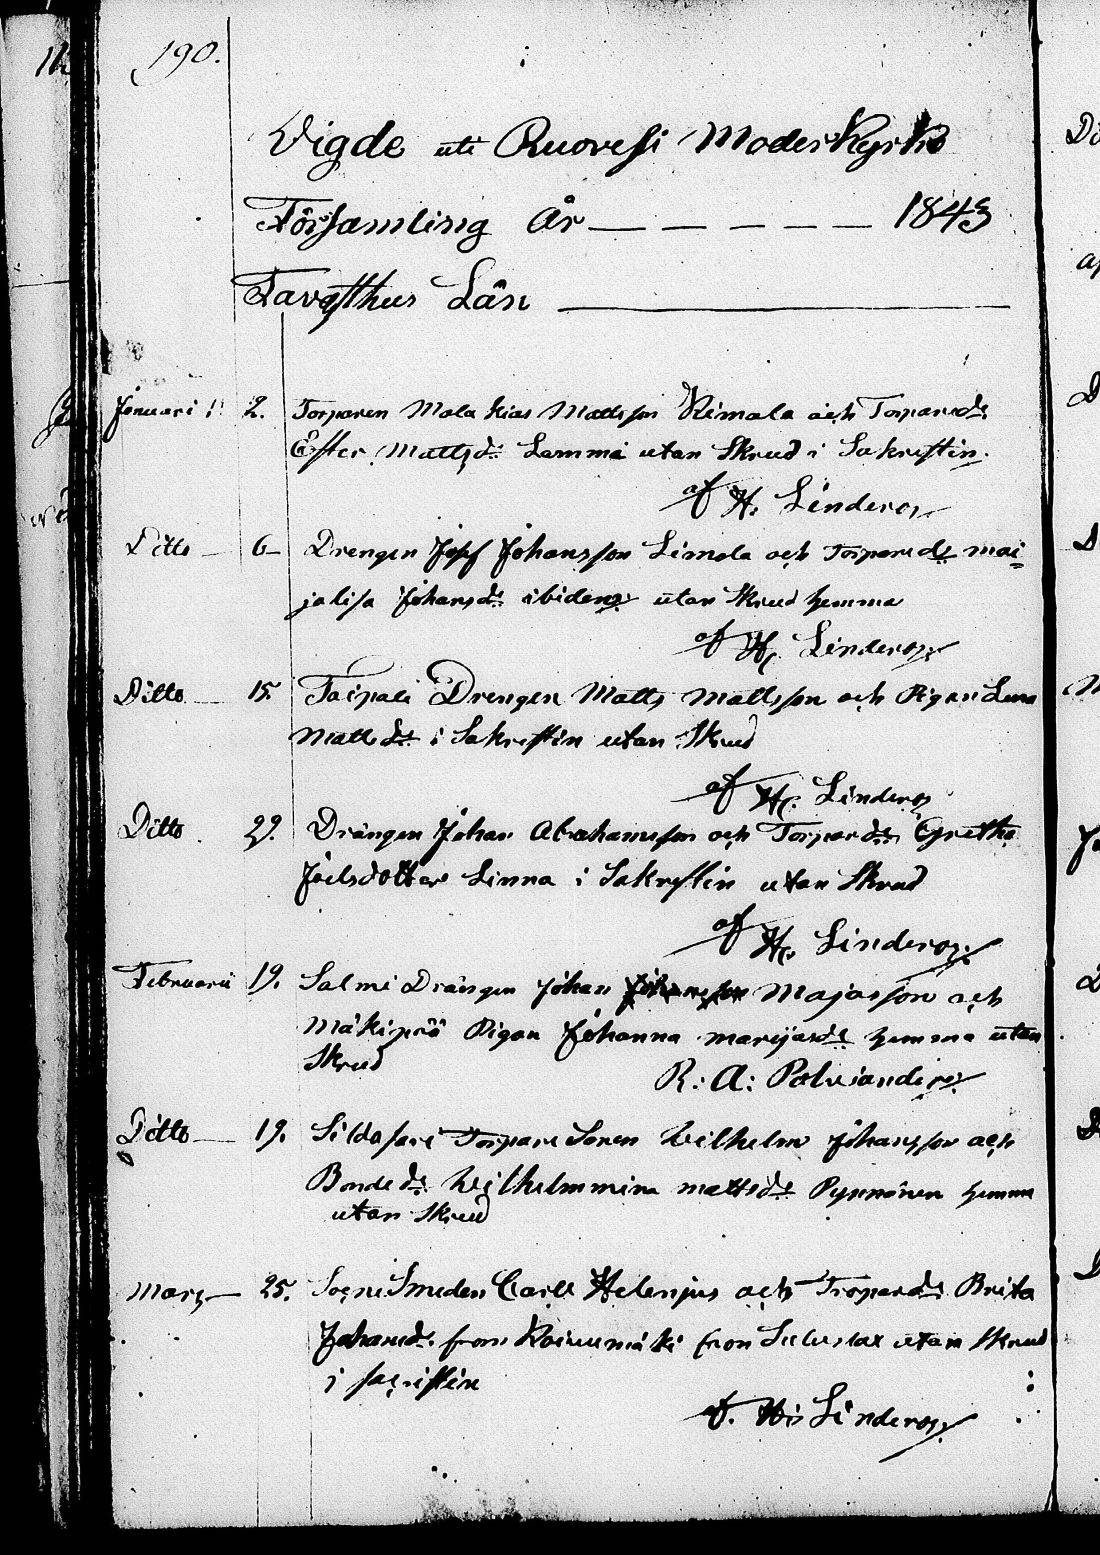 190.
Vigde uti Ruovesi Moderkyrko
Församling År — — — — — 1843
Tavasthus Län
Januari 2. Torparen Malakias Mattsson Kimala och Torpareds
Ester Mattsd: Lammi utan Skrud i Sakristin.
af H. Linderos
Ditto — 6 — Drengen Josef Johansson Limola och Torpareds mai=
jalisa Johansd: ibidem utan Skrud hemma
af H. Linderos
Ditto — 15. Taipali Drengen Matts Mattsson och Pigan Lena
Mattsd: i Sakristin utan Skrud
af H: Linderos
Ditto 29. Drängen Johan Abrahamsson och Torpards Gretha
Joelsdotter Linna i Sakristin utan Skrud
af H: Linderos
Februarii 19. Salmi Drängen Johan Majasson och
Mäkipää Pigan Johanna marijasd: hemma utan
Skrud
R: A: Polviander
Ditto — 19. Sildasari Torpare Sonen Wilhelm Johansson och
Bonde d: Wilhelmmina mattsd: Pynnönen hemma
utan Skrud
Mars — 25. SocneSmeden Carll Helenius och Tropards: Brita
Johansd: from Koivumäki fron utan Skrud
i sacristin
af. H: Linderos